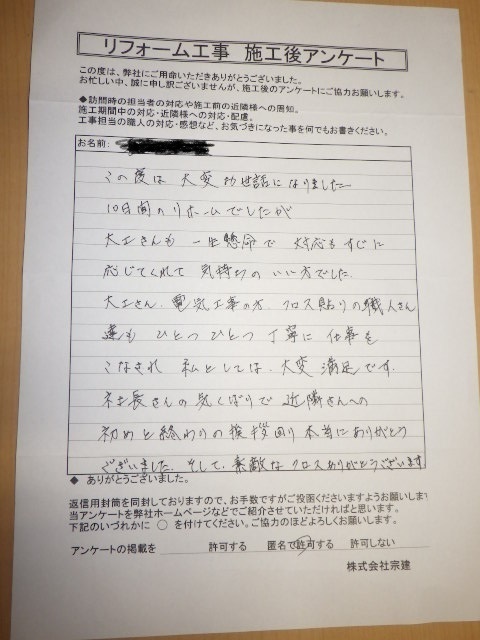 リフォーム工事 施工後アンケート
この度は、弊社にご用命いただきありがとうございました。
お忙しい中、誠に申し訳ございませんが、施工後のアンケートにご協力お願いします。
◆訪問時の担当者の対応や施工前の近隣様への周知。
施工期間中の対応・近隣様への対応・配慮。
工事担当の職人の対応・感想など、お気づきになった事を何でもお書きください。
お名前:
この度は 大変お世話になりました
10日間のリホームでしたが
大工さんも 一生懸命で 対応もすぐに
応じてくれて 気持ちの いい方でした.
大工さん. 電気工事の方. クロス貼りの職人さん
達も ひとつひとつ 丁寧に 仕事を
こなされ 私としては. 大変 満足です.
社長さんの気くばりで 近隣さんへの
初めと終わりの挨拶回り 本当にありがとう
ございました. そして. 素敵な クロスありがとうございます
◆ ありがとうございました。
返信用封筒を同封しておりますので、お手数ですがご投函くださいますようお願いしま
当アンケートを弊社ホームページなどでご紹介させていただければと思います。
下記のいづれかに ○ を付けてください。ご協力のほどよろしくお願いします。
アンケートの掲載を 許可する 匿名で許可する 許可しない
株式会社宗建